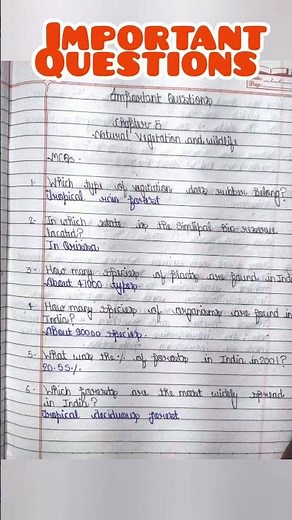 IMPORTANT
QUESTIONS
Important Questions
Chapter 5
Natural Vegetation and wildlife
MCQs -
1. Which type of vegetation does rubber belong?
Tropical rain forest
2. In which state is the Simlipal Bio-reserve
located?
In Orissa
3. How many species of plants are found in Indi
About 47000 types
4. How many species of organisms are found in
India?
About 90000 species.
5. What was the % of forests in India in 2001?
20.55%.
6. Which forests are the most widely spread
in India?
Tropical deciduous forest